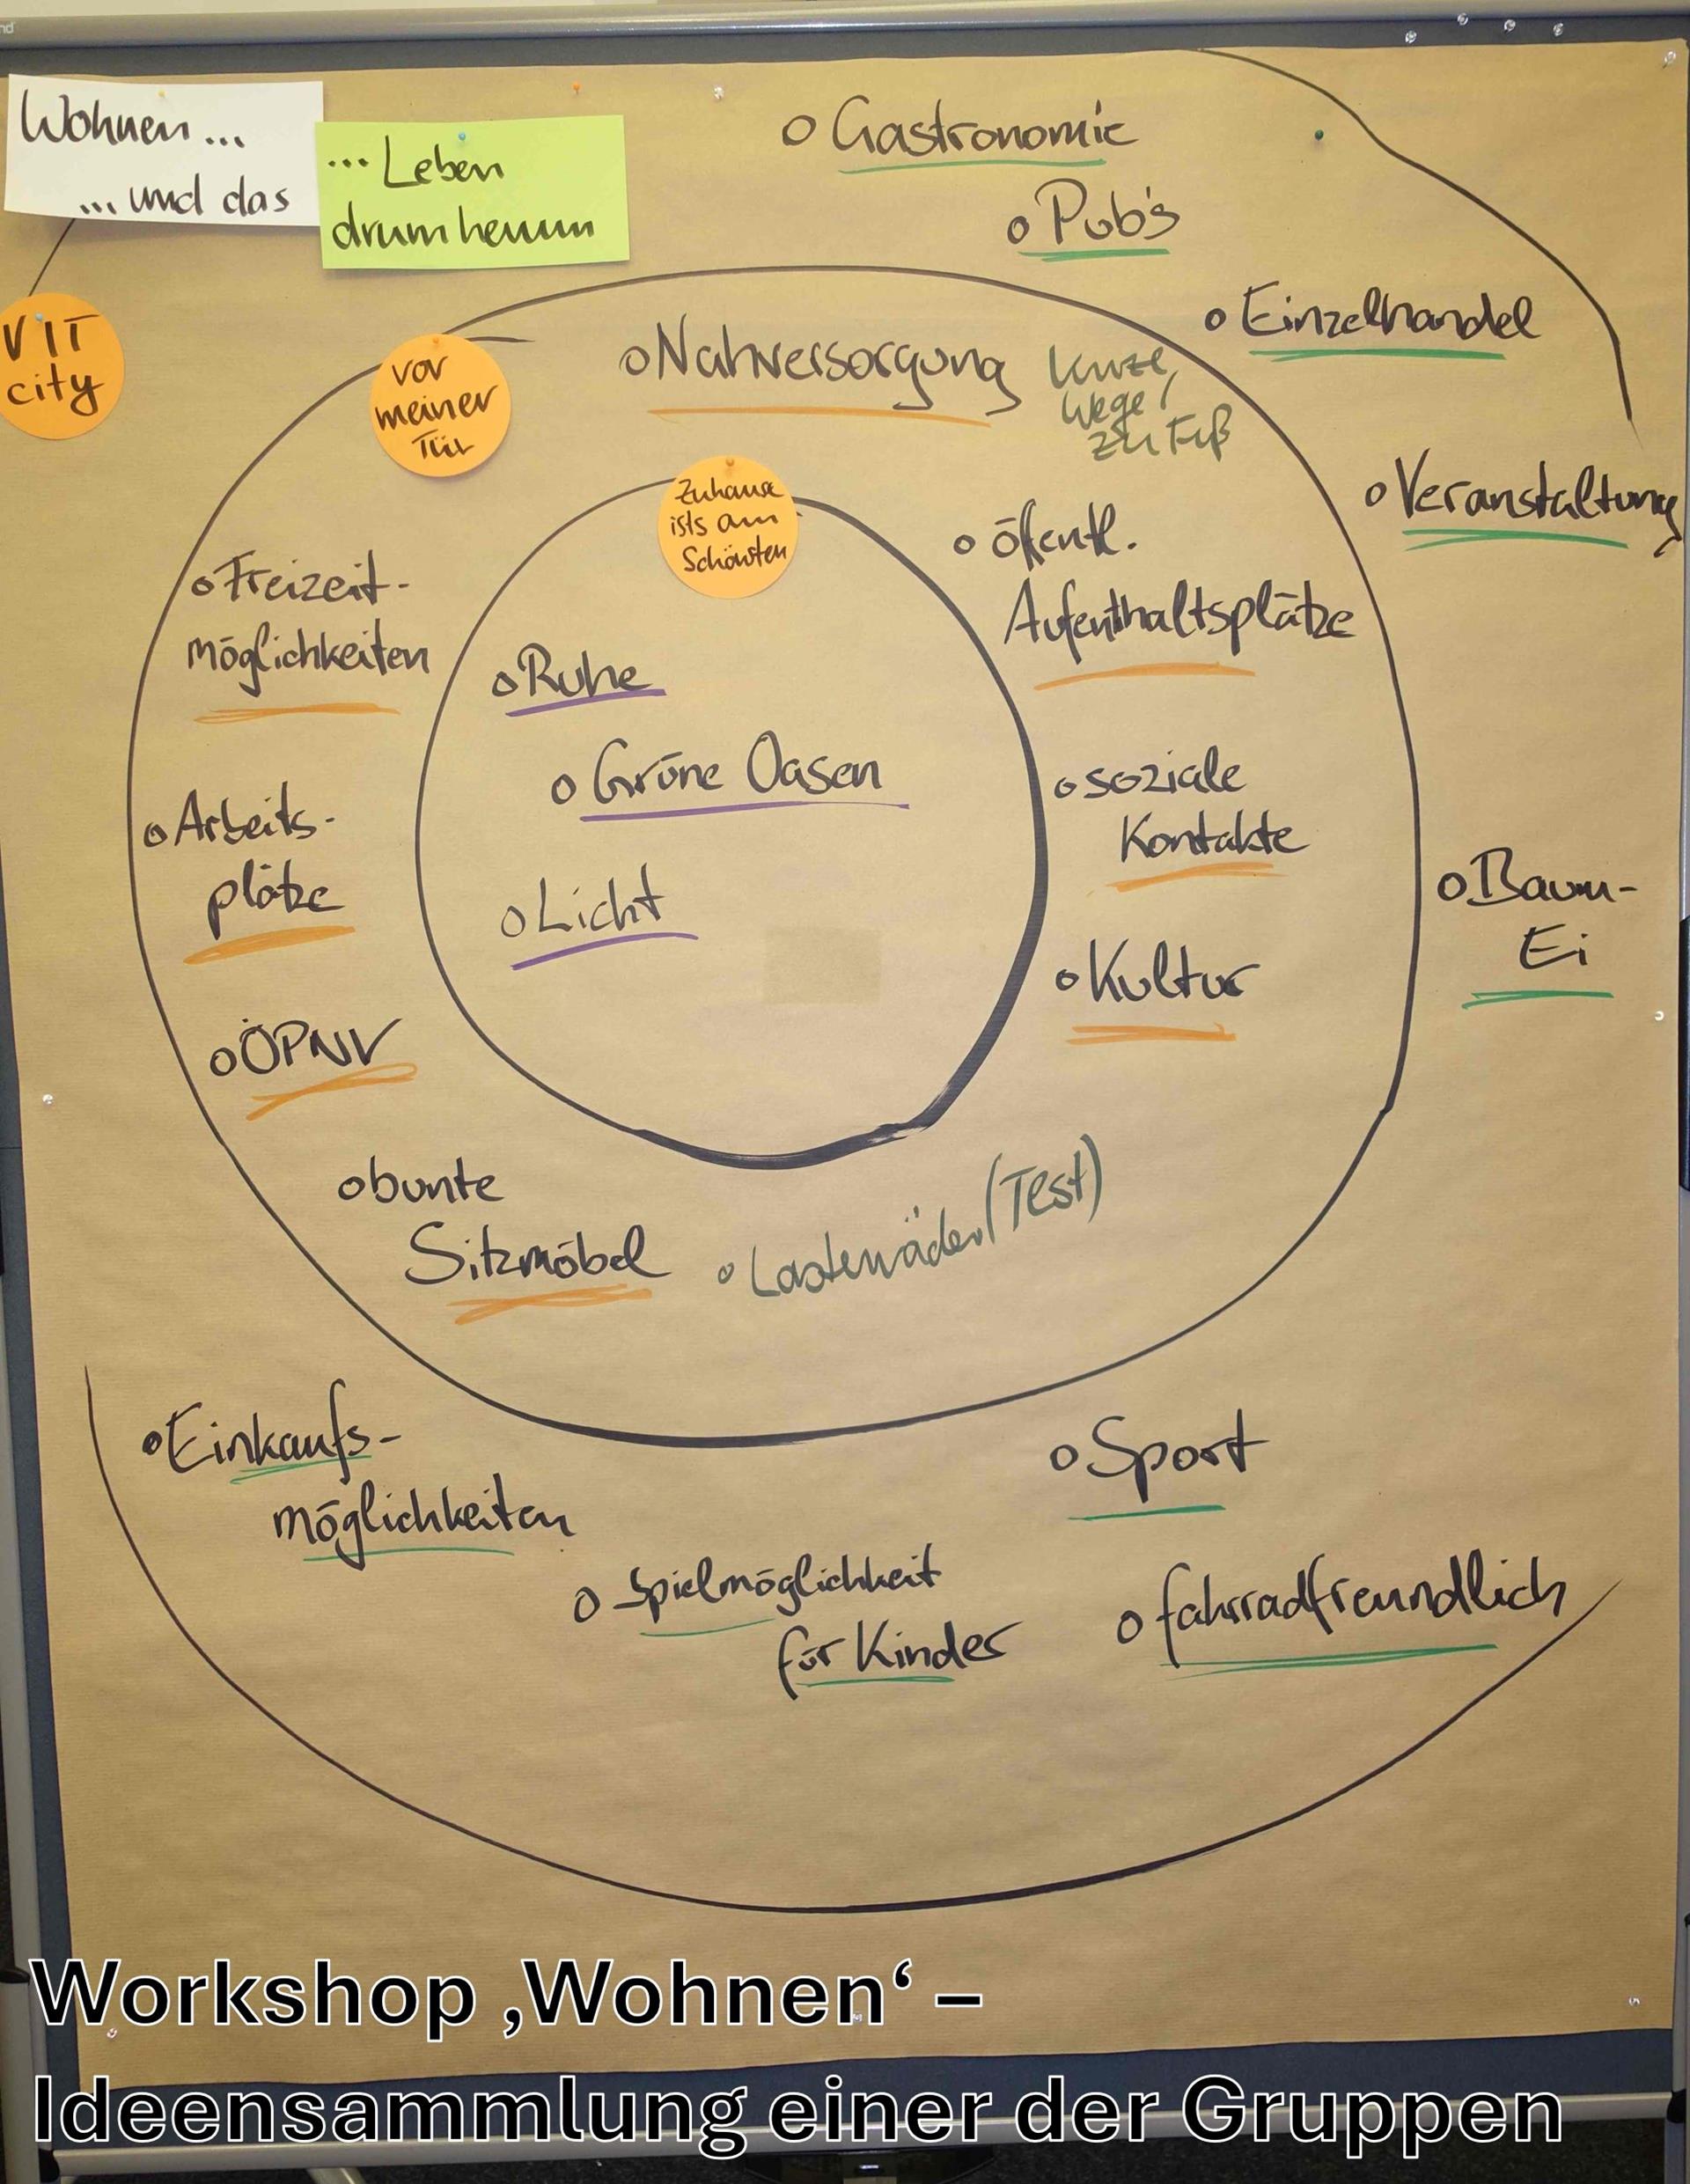 Wohnen...
... und das
... Leben
drumherum
o Gastronomie
o Pub's
VIT
city
vor
meiner
Tür
o Nahversorgung
kurze
Wege,
zu Fuß
o Einzelhandel
Zuhause
ists am
Schönsten
o Veranstaltung
o Öffentl.
Aufenthaltsplätze
o Freizeit-
möglichkeiten
o Ruhe
o Grüne Oasen
o soziale
Kontakte
o Arbeits-
plätze
o Licht
o Baum-
Ei
o Kultur
o ÖPNV
o bunte
Sitzmöbel
o Lastenräder (Test)
o Einkaufs-
möglichkeiten
o Sport
o Spielmöglichkeit
für Kinder
o fahrradfreundlich
Workshop ‚Wohnen‘ –
Ideensammlung einer der Gruppen